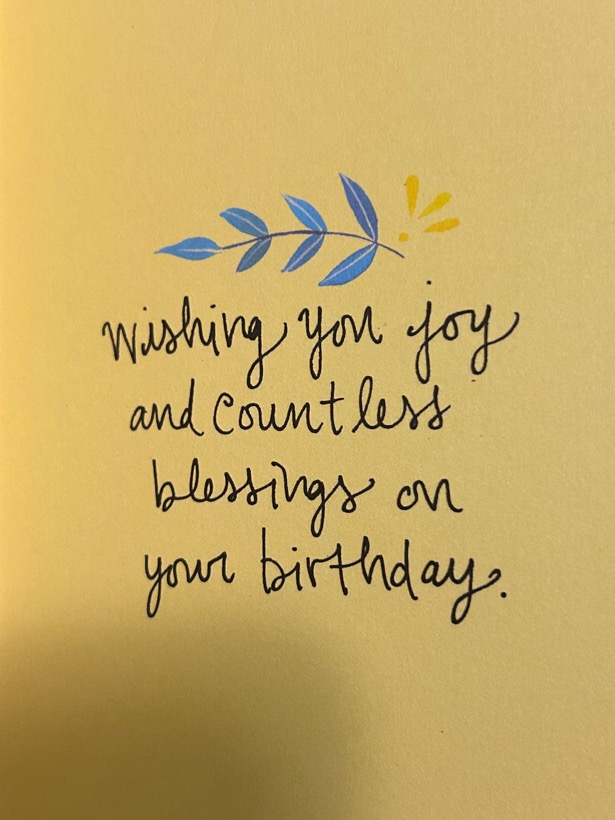 Wishing you joy
and countless
blessings on
your birthday.